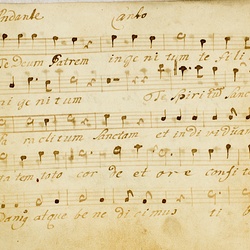 Andante Canto
Te deum Patrem ingenitum te fili
unigenitum Te Spiritum Sanc
Paraclitum Sanctam et individuam
tatem, toto corde et ore confite
damus, atque benedicimus ti